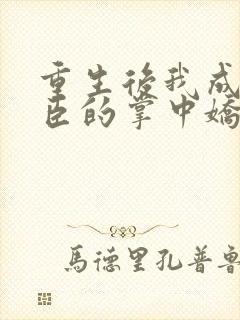 重生後我成
臣的掌中嬌
馬德里孔普魯